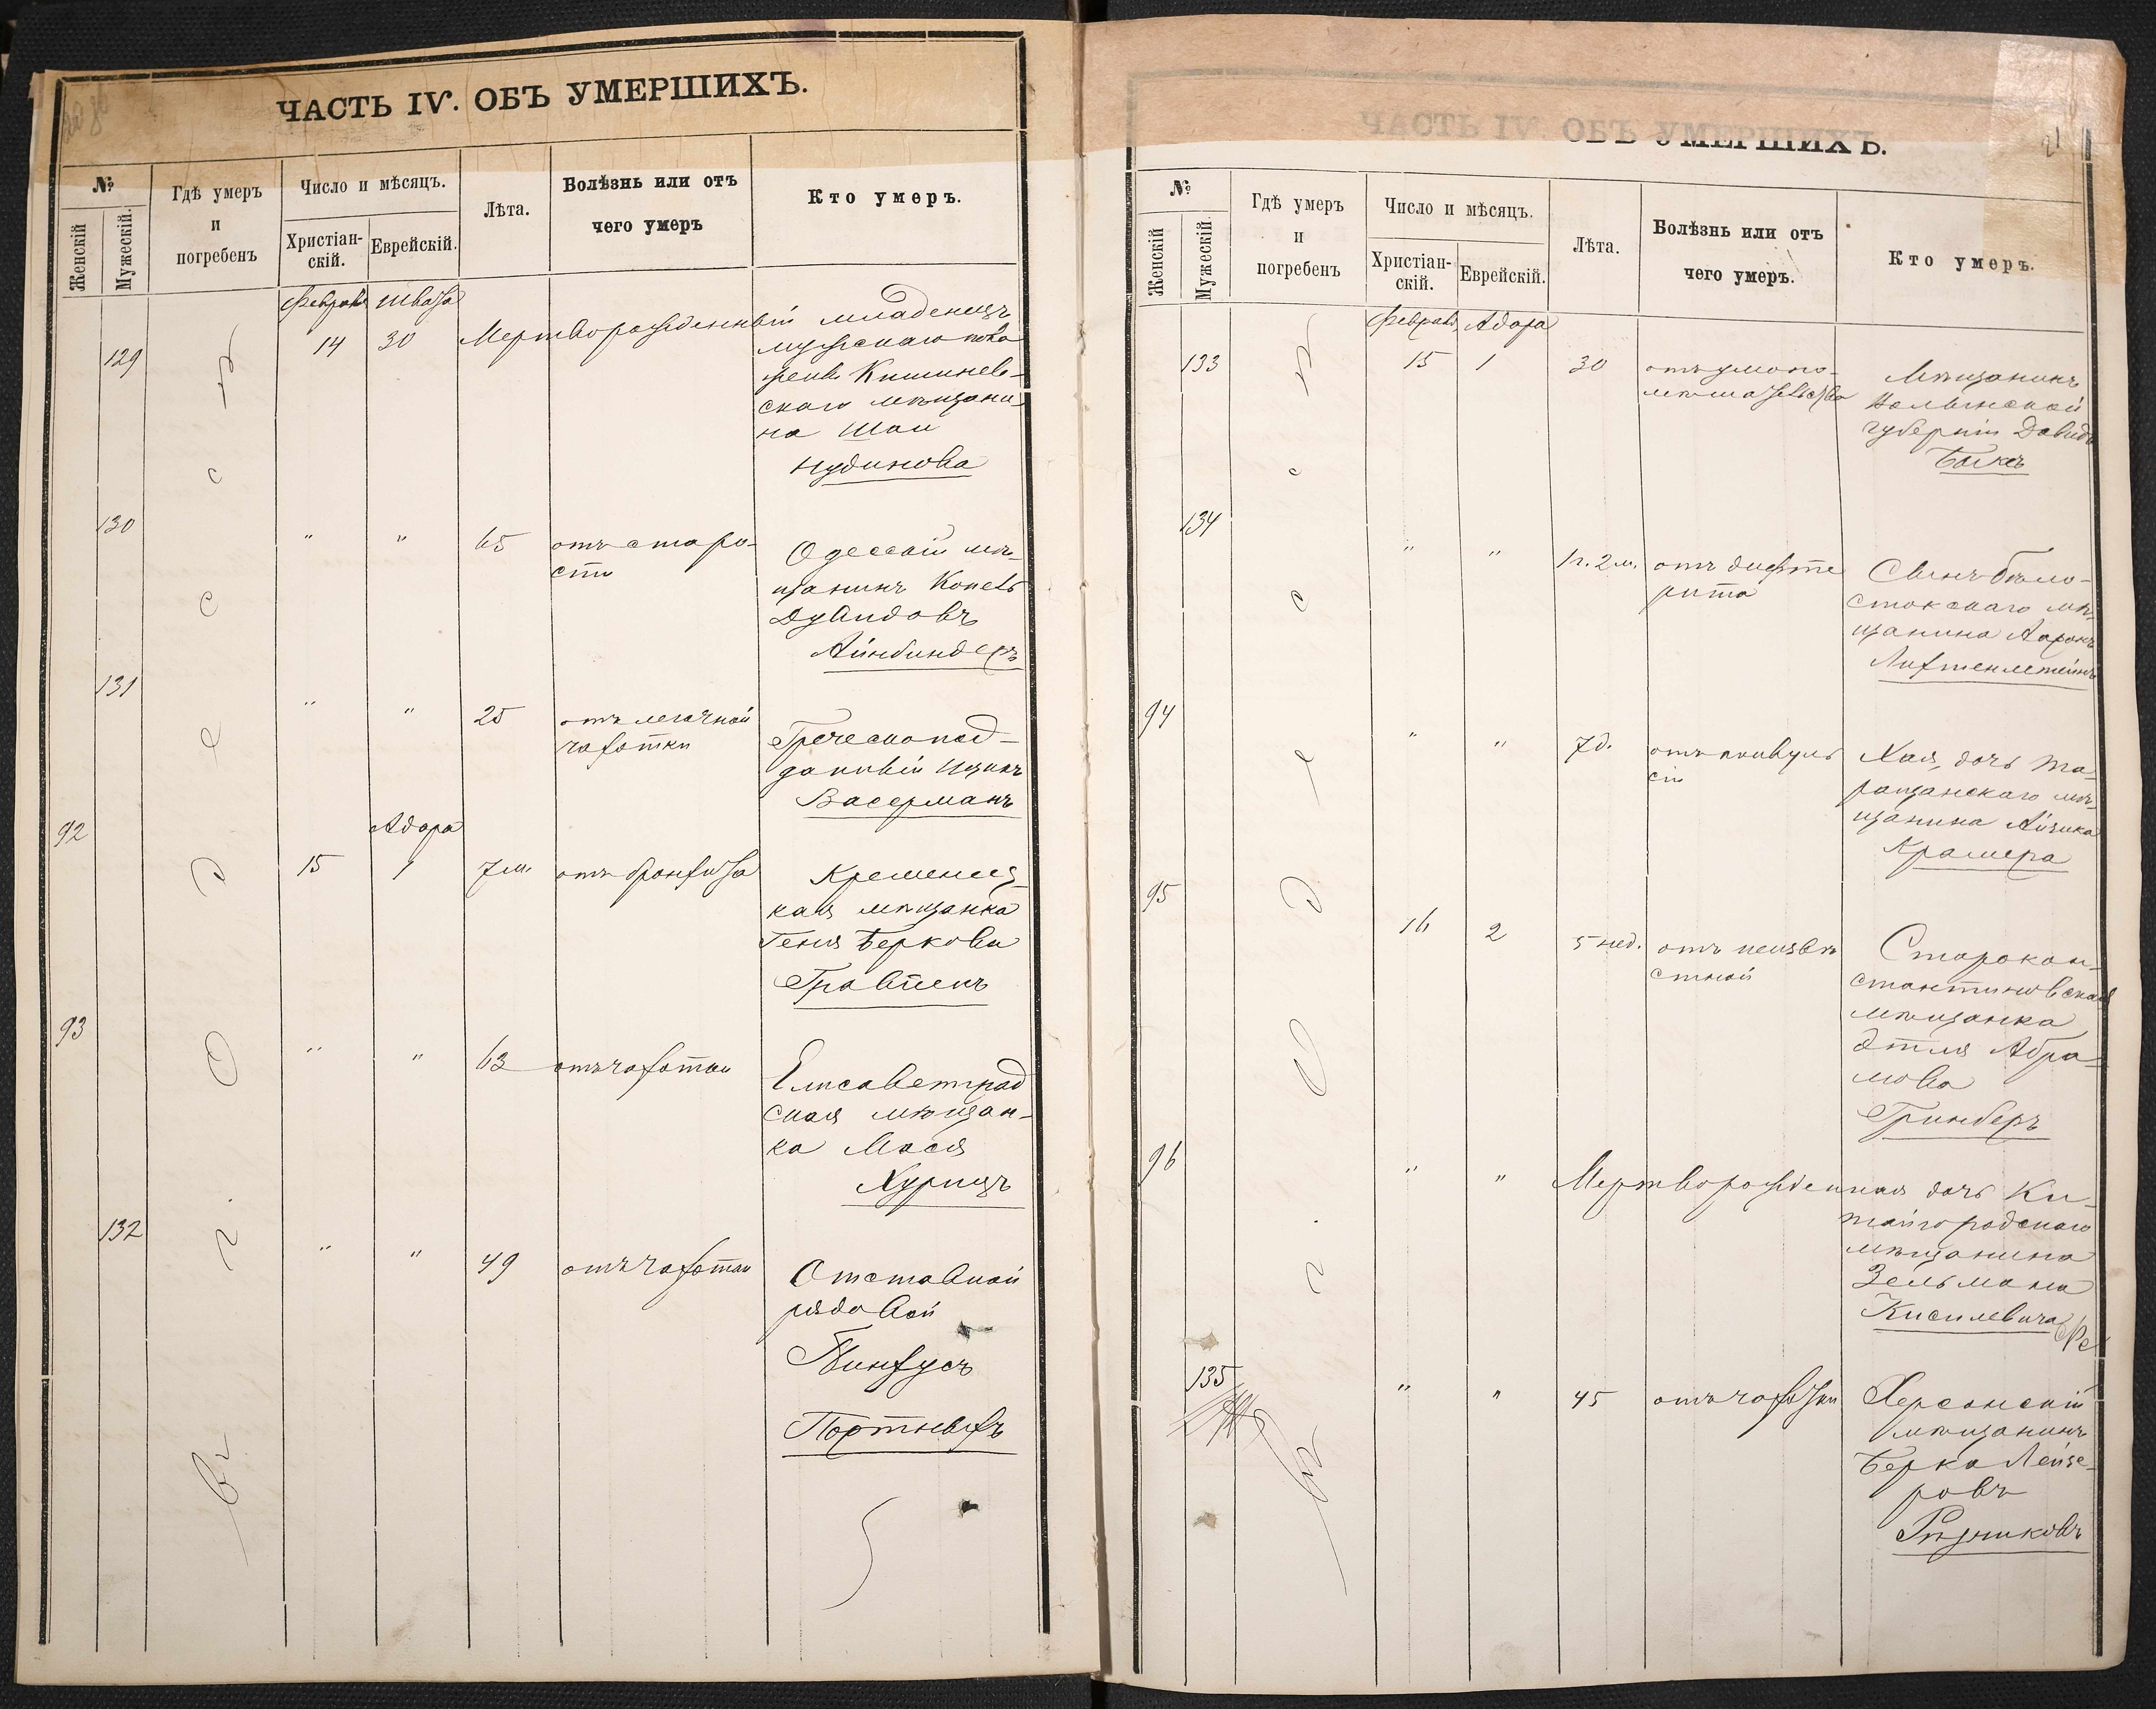 ЧАСТЬ IV. ОБЪ УМЕРШИХЪ.
№
Женскій
Мужескій.
Гдѣ умеръ
и
погребенъ
Число и мѣсяцъ.
Христіан-
скій.
Еврейскій.
Лѣта.
Болѣзнь или отъ
чего умеръ
Кто умеръ.
въ г. Одессѣ
Февраля Швата
129 14 30 Мертворожденный младенецъ
мужскаго пола
Кишинев-
скаго мѣщани-
на Шаи
Нудинова
130 " " 65 отъ старо-
сти
Одесскій мѣ-
щанинъ Копель
Дувидовъ
Айнбиндеръ
131 " " 25 отъ легочной
чахотки
Греческопод-
данный Ицикъ
Васерманъ
Адара
92 15 1 7 м. отъ бронхита
Кременец-
кая мѣщанка
Геня Беркова
93 " " 63 отъ чахотки
Елисаветград
ская мѣщан-
ка Мася
Хурицъ
132 " " 49 отъ чахотки
Отставной
рядовой
Пинхусъ
Портныхъ
ЧАСТЬ IV. ОБЪ УМЕРШИХЪ.
21
№
Женскій
Мужескій.
Гдѣ умеръ
и
погребенъ
Число и мѣсяцъ.
Христіан-
скій.
Еврейскій.
Лѣта.
Болѣзнь или отъ
чего умеръ.
Кто умеръ.
въ г. Одессѣ
Февраля Адара
133 15 1 30 отъ умопо-
мѣшательства
Мѣщанинъ
Волынской
губерніи Давидъ
134 " " 1 г. 2 м. отъ дифте
рита
Сынъ Бѣло-
стокскаго мѣ-
щанина Ааронъ
Лихтенштейнъ
94 " " 7 д. отъ конвуль
сій
Хая, дочь Та-
ращанскаго мѣ-
щанина Айзика
Крамера
95 16 2 5 нед. отъ неизвѣ
стной
Старокон-
стантиновская
мѣщанка
Этля Абра-
мова
Гринберъ
96 " " Мертворожденная дочь Ки-
тайгородскаго
мѣщанина
Зельмана
Кисилевича
135 " " 45 отъ чахотки
Херсонскій
мѣщанинъ
Берко Лейзе-
ровъ
Рѣзниковъ